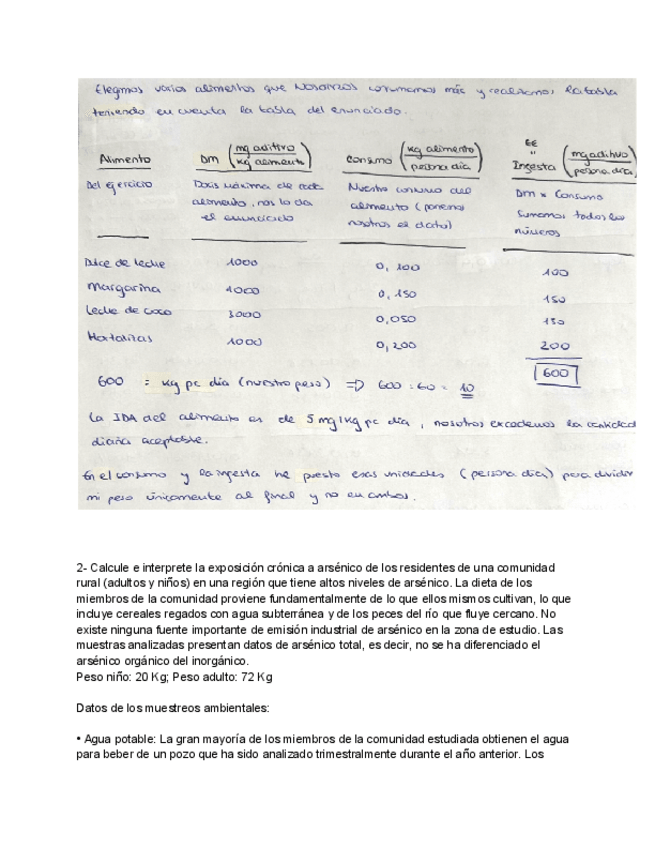 Elegimos varios alimentos que nosotros consumamos más y realizamos la tabla
teniendo en cuenta la tabla del enunciado.
Alimento DM (mg aditivo / kg alimento) Consumo (kg alimento / persona día) EE " Ingesta (mg aditivo / persona día)
Del ejercicio Dosis máxima de cada alimento, nos la da el enunciado Nuestro consumo del alimento (ponemos nosotros el dato) DM x Consumo Sumamos todos los números
Dulce de leche 1000 0,100 100
Margarina 1000 0,150 150
Leche de coco 3000 0,050 150
Hortalizas 1000 0,200 200
600
600 : kg pc día (nuestro peso) => 600 : 60 = 10
La IDA del alimento es de 5 mg/kg pc día, nosotros excedemos la cantidad
diaria aceptable.
En el consumo y la ingesta he puesto esas unidades (persona día) para dividir
mi peso únicamente al final y no en ambos.
2- Calcule e interprete la exposición crónica a arsénico de los residentes de una comunidad
rural (adultos y niños) en una región que tiene altos niveles de arsénico. La dieta de los
miembros de la comunidad proviene fundamentalmente de lo que ellos mismos cultivan, lo que
incluye cereales regados con agua subterránea y de los peces del río que fluye cercano. No
existe ninguna fuente importante de emisión industrial de arsénico en la zona de estudio. Las
muestras analizadas presentan datos de arsénico total, es decir, no se ha diferenciado el
arsénico orgánico del inorgánico.
Peso niño: 20 Kg; Peso adulto: 72 Kg
Datos de los muestreos ambientales:
• Agua potable: La gran mayoría de los miembros de la comunidad estudiada obtienen el agua
para beber de un pozo que ha sido analizado trimestralmente durante el año anterior. Los